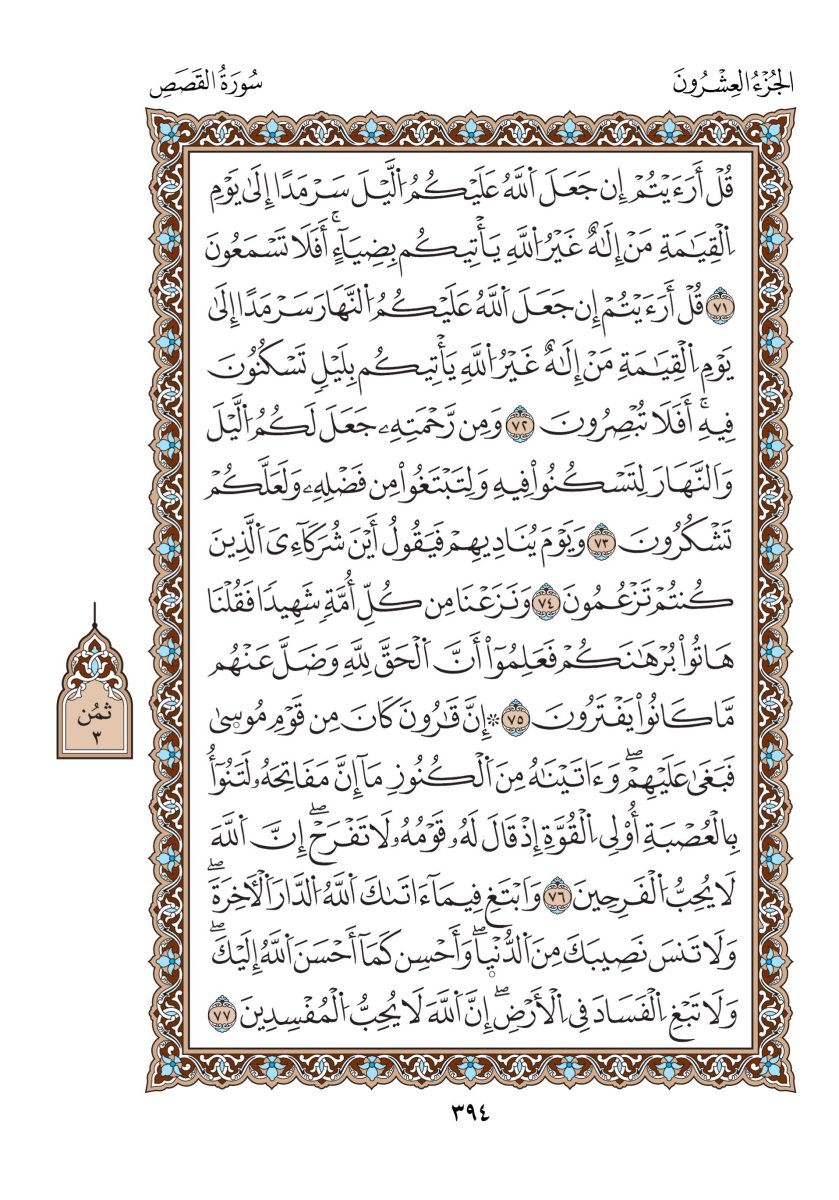 الجُزْءُ العِشْرُونَ
سُورَةُ القَصَصِ
قُلْ أَرَءَيْتُمْ إِن جَعَلَ اَ۬للَّهُ عَلَيْكُمُ اُ۬لَّيْلَ سَرْمَدًا إِلَىٰ يَوْمِ
اِ۬لْقِيَٰمَةِ مَنْ إِلَٰهٌ غَيْرُ اُ۬للَّهِ يَأْتِيكُم بِضِيَآءٍۚ أَفَلَا تَسْمَعُونَ
٧١ قُلْ أَرَءَيْتُمْ إِن جَعَلَ اَ۬للَّهُ عَلَيْكُمُ اُ۬لنَّهَارَ سَرْمَدًا إِلَىٰ
يَوْمِ اِ۬لْقِيَٰمَةِ مَنْ إِلَٰهٌ غَيْرُ اُ۬للَّهِ يَأْتِيكُم بِلَيْلٖ تَسْكُنُونَ
فِيهِۚ أَفَلَا تُبْصِرُونَ ٧٢ وَمِن رَّحْمَتِهِۦ جَعَلَ لَكُمُ اُ۬لَّيْلَ
وَالنَّهَارَ لِتَسْكُنُواْ فِيهِ وَلِتَبْتَغُواْ مِن فَضْلِهِۦ وَلَعَلَّكُمْ
تَشْكُرُونَ ٧٣ وَيَوْمَ يُنَادِيهِمْ فَيَقُولُ أَيْنَ شُرَكَآءِيَ اَ۬لَّذِينَ
كُنتُمْ تَزْعُمُونَ ٧٤ وَنَزَعْنَا مِن كُلِّ أُمَّةٖ شَهِيدٗا فَقُلْنَا
هَاتُواْ بُرْهَٰنَكُمْ فَعَلِمُوٓاْ أَنَّ اَ۬لْحَقَّ لِلَّهِ وَضَلَّ عَنْهُم
مَّا كَانُواْ يَفْتَرُونَ ٧٥ ۞ إِنَّ قَٰرُونَ كَانَ مِن قَوْمِ مُوسۭيٰ
فَبَغَىٰ عَلَيْهِمْۖ وَءَاتَيْنَٰهُ مِنَ اَ۬لْكُنُوزِ مَآ إِنَّ مَفَاتِحَهُۥ لَتَنُوٓأُ
بِالْعُصْبَةِ أُوْلِي اِ۬لْقُوَّةِ إِذْ قَالَ لَهُۥ قَوْمُهُۥ لَا تَفْرَحْۖ إِنَّ اَ۬للَّهَ
لَا يُحِبُّ اُ۬لْفَرِحِينَ ٧٦ وَابْتَغِ فِيمَآ ءَاتَىٰكَ اَ۬للَّهُ اُ۬لدَّارَ اَ۬لْأٓخِرَةَۖ
وَلَا تَنسَ نَصِيبَكَ مِنَ اَ۬لدُّنْيۭاۖ وَأَحْسِن كَمَآ أَحْسَنَ اَ۬للَّهُ إِلَيْكَۖ
وَلَا تَبْغِ اِ۬لْفَسَادَ فِي اِ۬لْأَرْضِۖ إِنَّ اَ۬للَّهَ لَا يُحِبُّ اُ۬لْمُفْسِدِينَ ٧٧
ثمُن
٣
٣٩٤